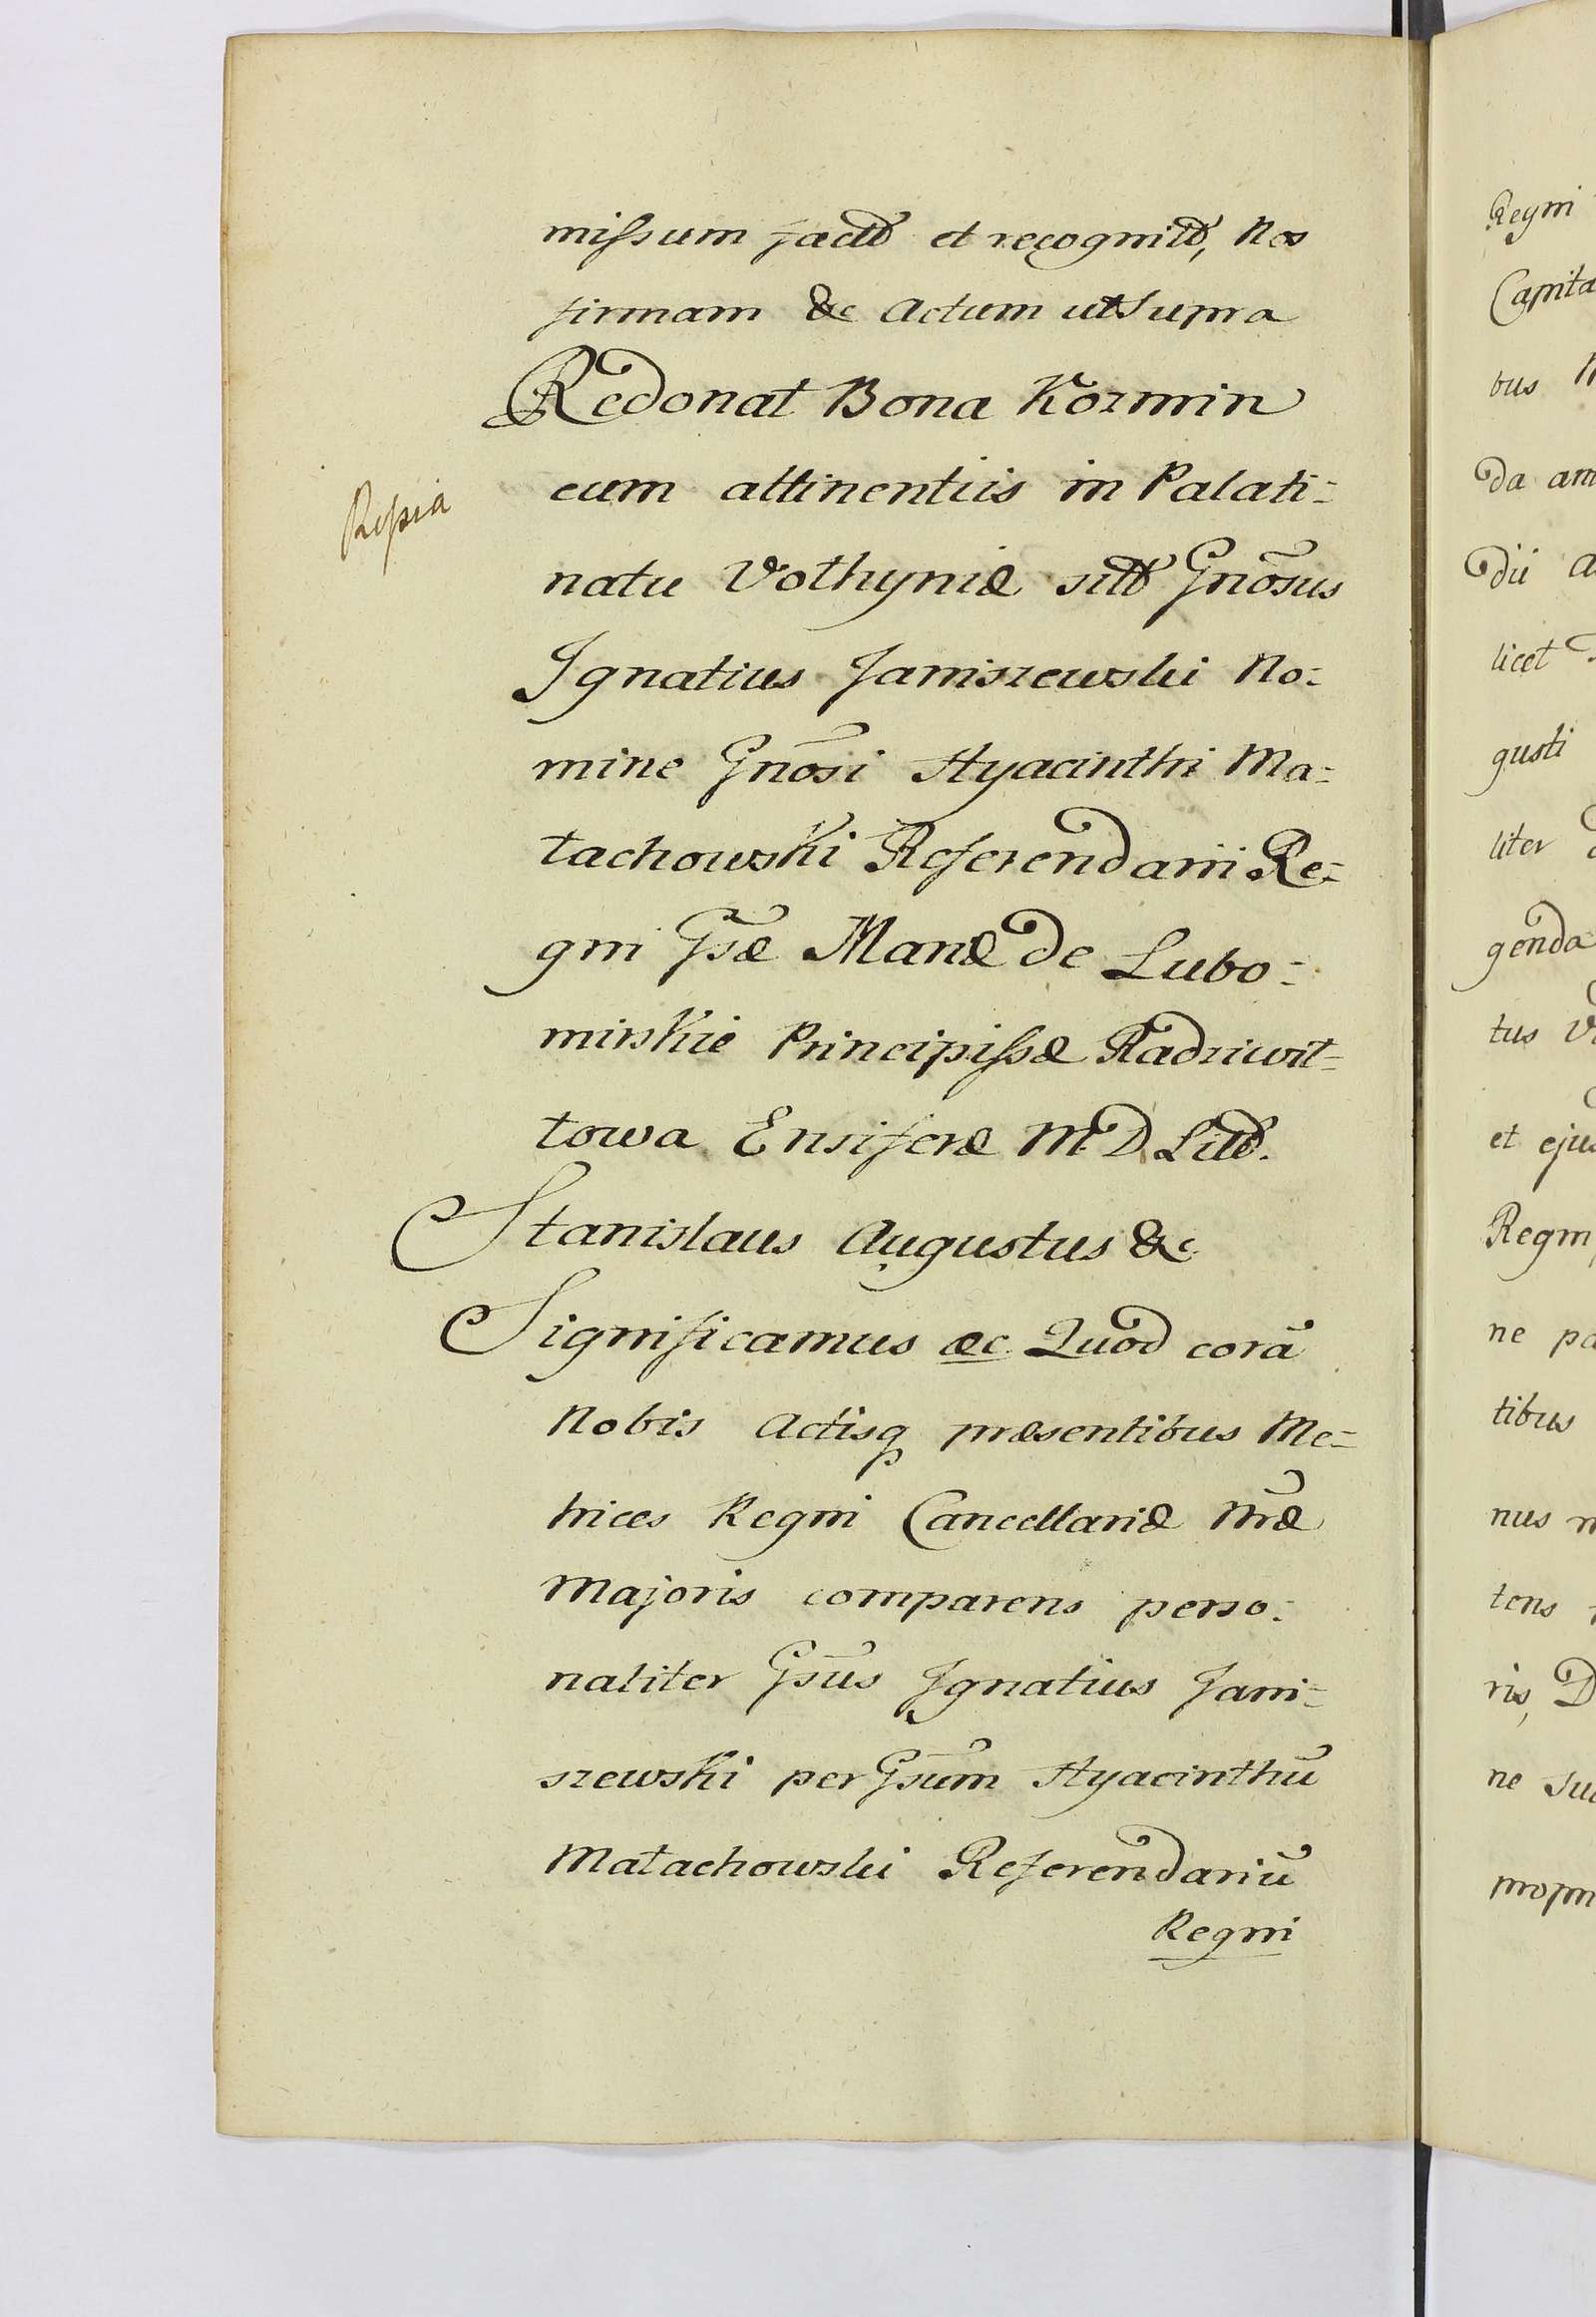 missum factũ et recognitũ, Nos
firmam &c Actum ut Supra
Redonat Bona Kozmin
cum attinentiis in Palati=
natu Volhyniæ sitũ Gnõsus
Ignatius Janiszewski No=
mine Gnõsi Hyacinthi Ma=
łachowski Referendarii Re=
gni Gsæ̃ Mariæ de Lubo=
mirskie Principissæ Radziwił=
łowa Ensiferæ M. D. Litt.
Stanislaus Augustus &c
Significamus &c. Quod corã
Nobis Actisq præsentibus Me=
trices Regni Cancellariæ Nræ̃
Majoris comparens perso=
naliter Gsũs Ignatius Jani=
szewski per Gsũm Hyacinthũ
Małachowski Referendariũ
Regni
Regni
Capita
bus
da am
dii a
licet
gusti
liter
genda
tus
et eju
Regni
ne pa
tibus
nus
tens
ris, D
ne su
propri